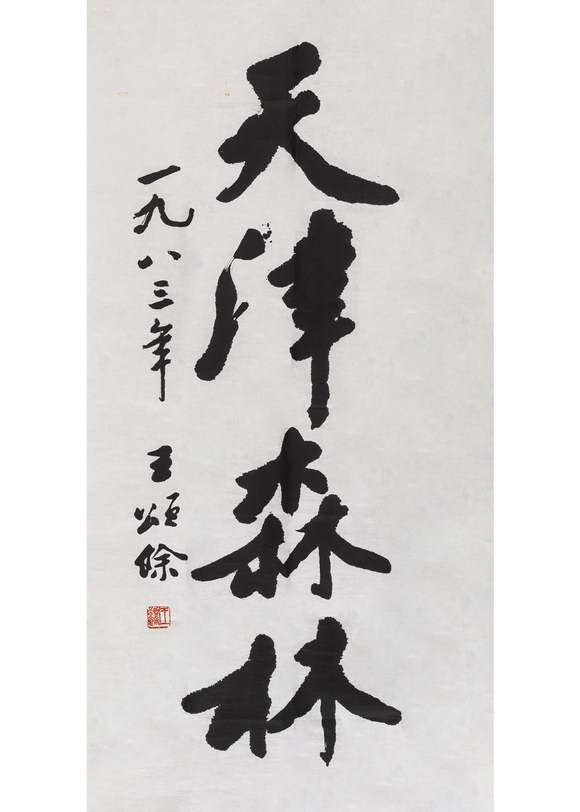 天津森林
一九八三年 王颂馀